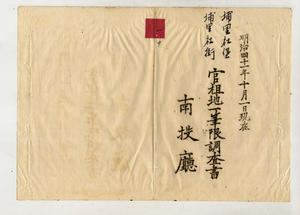 明治四十一年十月一日現在
埔里社堡
埔里社街
官租地一筆限調査書
南投廳